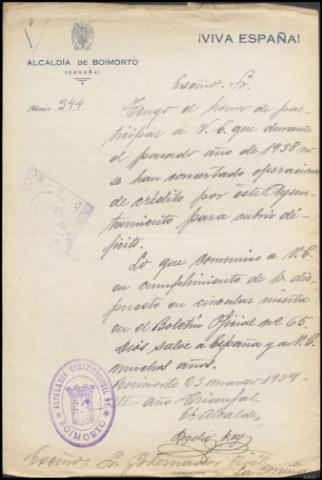 ¡VIVA ESPAÑA!
ALCALDÍA DE BOIMORTO
(CORUÑA)
Núm. 344
Excmo. Sr.
Tengo el honor de par-
ticipar á V.E. que durante
el pasado año de 1938 no
se han concertado operaciones
de crédito por este Ayun-
tamiento para cubrir dé-
ficits.
Lo que comunico a V.E.
en cumplimiento de lo dis-
puesto en circular inserta
en el Boletín Oficial nº 65.
Dios salve a España y a V.E.
muchos años.
Boimorto 23 marzo 1939
III Año Triunfal
El Alcalde,
Rogelio Rey
ALCALDIA CONSTITUCIONAL DE
BOIMORTO
Excmo. Sr. Gobernador Civil
La Coruña